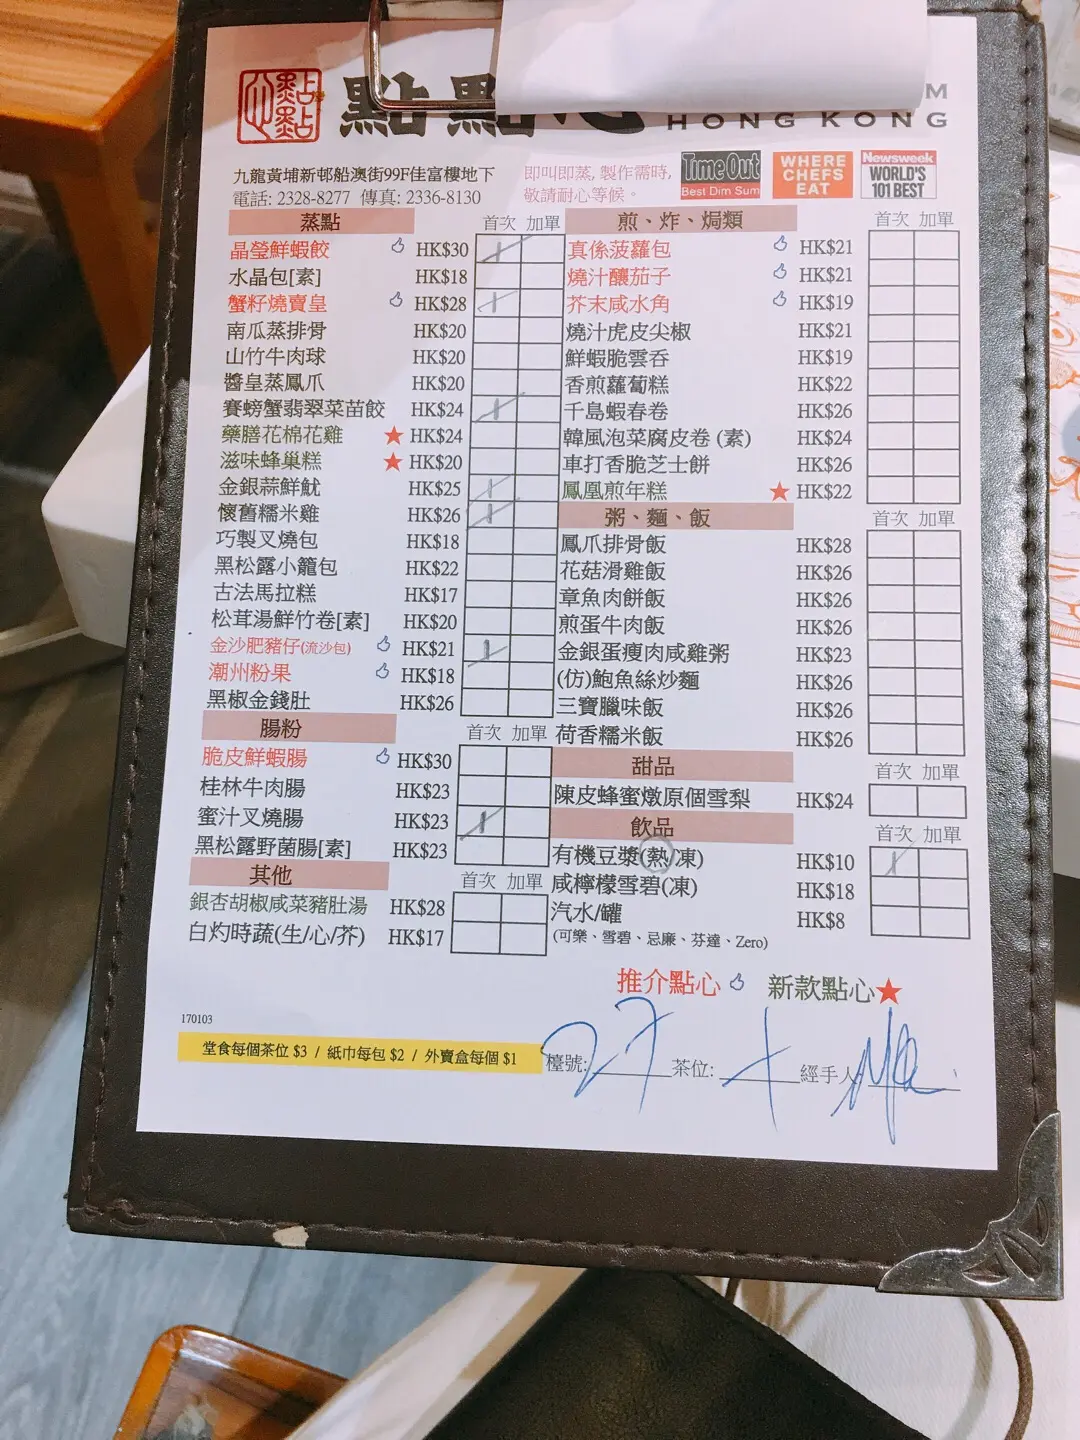 點點
點點心
M
HONG KONG
九龍黃埔新邨船澳街99F佳富樓地下
電話: 2328-8277 傳真: 2336-8130
即叫即蒸, 製作需時,
敬請耐心等候。
TimeOut
Best Dim Sum
WHERE
CHEFS
EAT
Newsweek
WORLD'S
101 BEST
蒸點 首次 加單
晶瑩鮮蝦餃 HK$30
水晶包[素] HK$18
蟹籽燒賣皇 HK$28
南瓜蒸排骨 HK$20
山竹牛肉球 HK$20
醬皇蒸鳳爪 HK$20
賽螃蟹翡翠菜苗餃 HK$24
藥膳花棉花雞 ★ HK$24
滋味蜂巢糕 ★ HK$20
金銀蒜鮮魷 HK$25
懷舊糯米雞 HK$26
巧製叉燒包 HK$18
黑松露小籠包 HK$22
古法馬拉糕 HK$17
松茸湯鮮竹卷[素] HK$20
金沙肥豬仔(流沙包) HK$21
潮州粉果 HK$18
黑椒金錢肚 HK$26
腸粉 首次 加單
脆皮鮮蝦腸 HK$30
桂林牛肉腸 HK$23
蜜汁叉燒腸 HK$23
黑松露野菌腸[素] HK$23
其他 首次 加單
銀杏胡椒咸菜豬肚湯 HK$28
白灼時蔬(生/心/芥) HK$17
煎、炸、焗類 首次 加單
真係菠蘿包 HK$21
燒汁釀茄子 HK$21
芥末咸水角 HK$19
燒汁虎皮尖椒 HK$21
鮮蝦脆雲吞 HK$19
香煎蘿蔔糕 HK$22
千島蝦春卷 HK$26
韓風泡菜腐皮卷 (素) HK$24
車打香脆芝士餅 HK$26
鳳凰煎年糕 ★ HK$22
粥、麵、飯 首次 加單
鳳爪排骨飯 HK$28
花菇滑雞飯 HK$26
章魚肉餅飯 HK$26
煎蛋牛肉飯 HK$26
金銀蛋瘦肉咸雞粥 HK$23
(仿)鮑魚絲炒麵 HK$26
三寶臘味飯 HK$26
荷香糯米飯 HK$26
甜品 首次 加單
陳皮蜂蜜燉原個雪梨 HK$24
飲品 首次 加單
有機豆漿(熱/凍) HK$10
咸檸檬雪碧(凍) HK$18
汽水/罐 HK$8
(可樂、雪碧、忌廉、芬達、Zero)
推介點心 新款點心★
170103
堂食每個茶位 $3 / 紙巾每包 $2 / 外賣盒每個 $1
檯號: 27 茶位: 經手人: